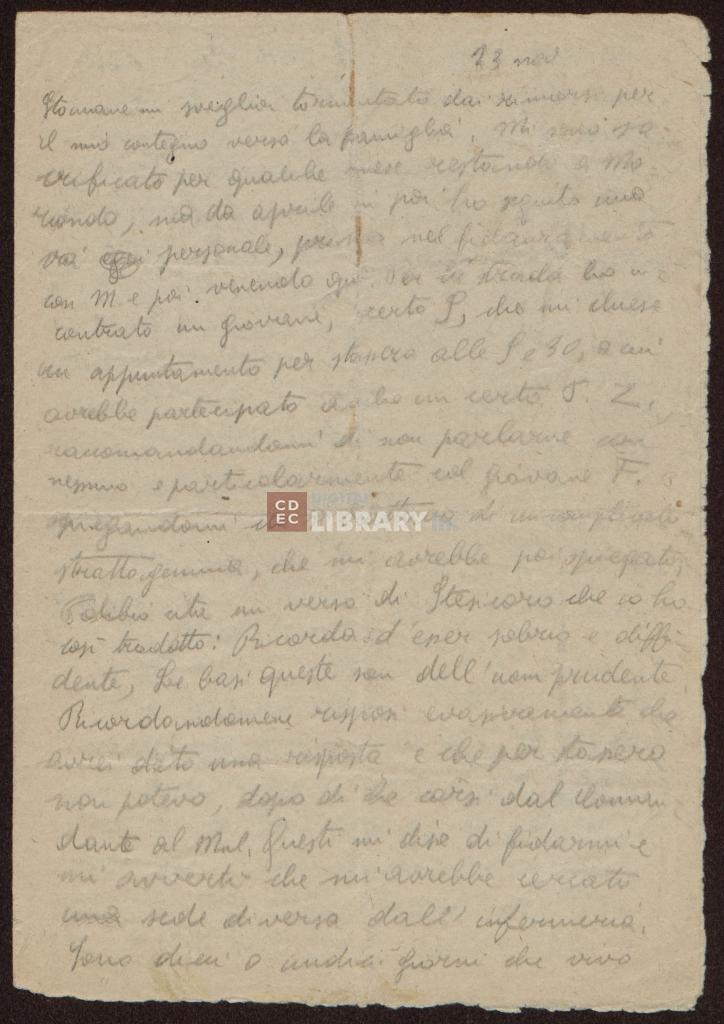 23 nov
Stamane mi sveglia tormentato dai rimorsi per
il mio contegno verso la famiglia. Mi sono sa-
crificato per qualche mese restando a Mo-
rondo, ma da aprile in poi ho seguito una
via personale, prima nel fidanzamento
con M e poi venendo qui. Per la strada ho in-
contrato un giovane, certo P, che mi chiese
un appuntamento per stasera alle 8 e 30, a cui
avrebbe partecipato anche un certo T. Z.
raccomandandomi di non parlarne con
nessuno e particolarmente col giovane F.
spiegandomi che si di un complicato
strattagemma, che mi avrebbe poi spiegato;
Polibio cita un verso di Stesicoro che io ho
così tradotto: Ricorda d'esser sobrio e diffi-
dente, Le basi queste son dell'uom prudente
Ricordandomene risposi evasivamente che
avrei dato una risposta e che per stasera
non potevo, dopo di che corsi dal Coman-
dante al Mul. Questi mi disse di fidarmi e
mi avvertì che mi avrebbe cercato
una sede diversa dall'infermeria.
Sono dieci o undici giorni che vivo
CDEC DIGITAL LIBRARY